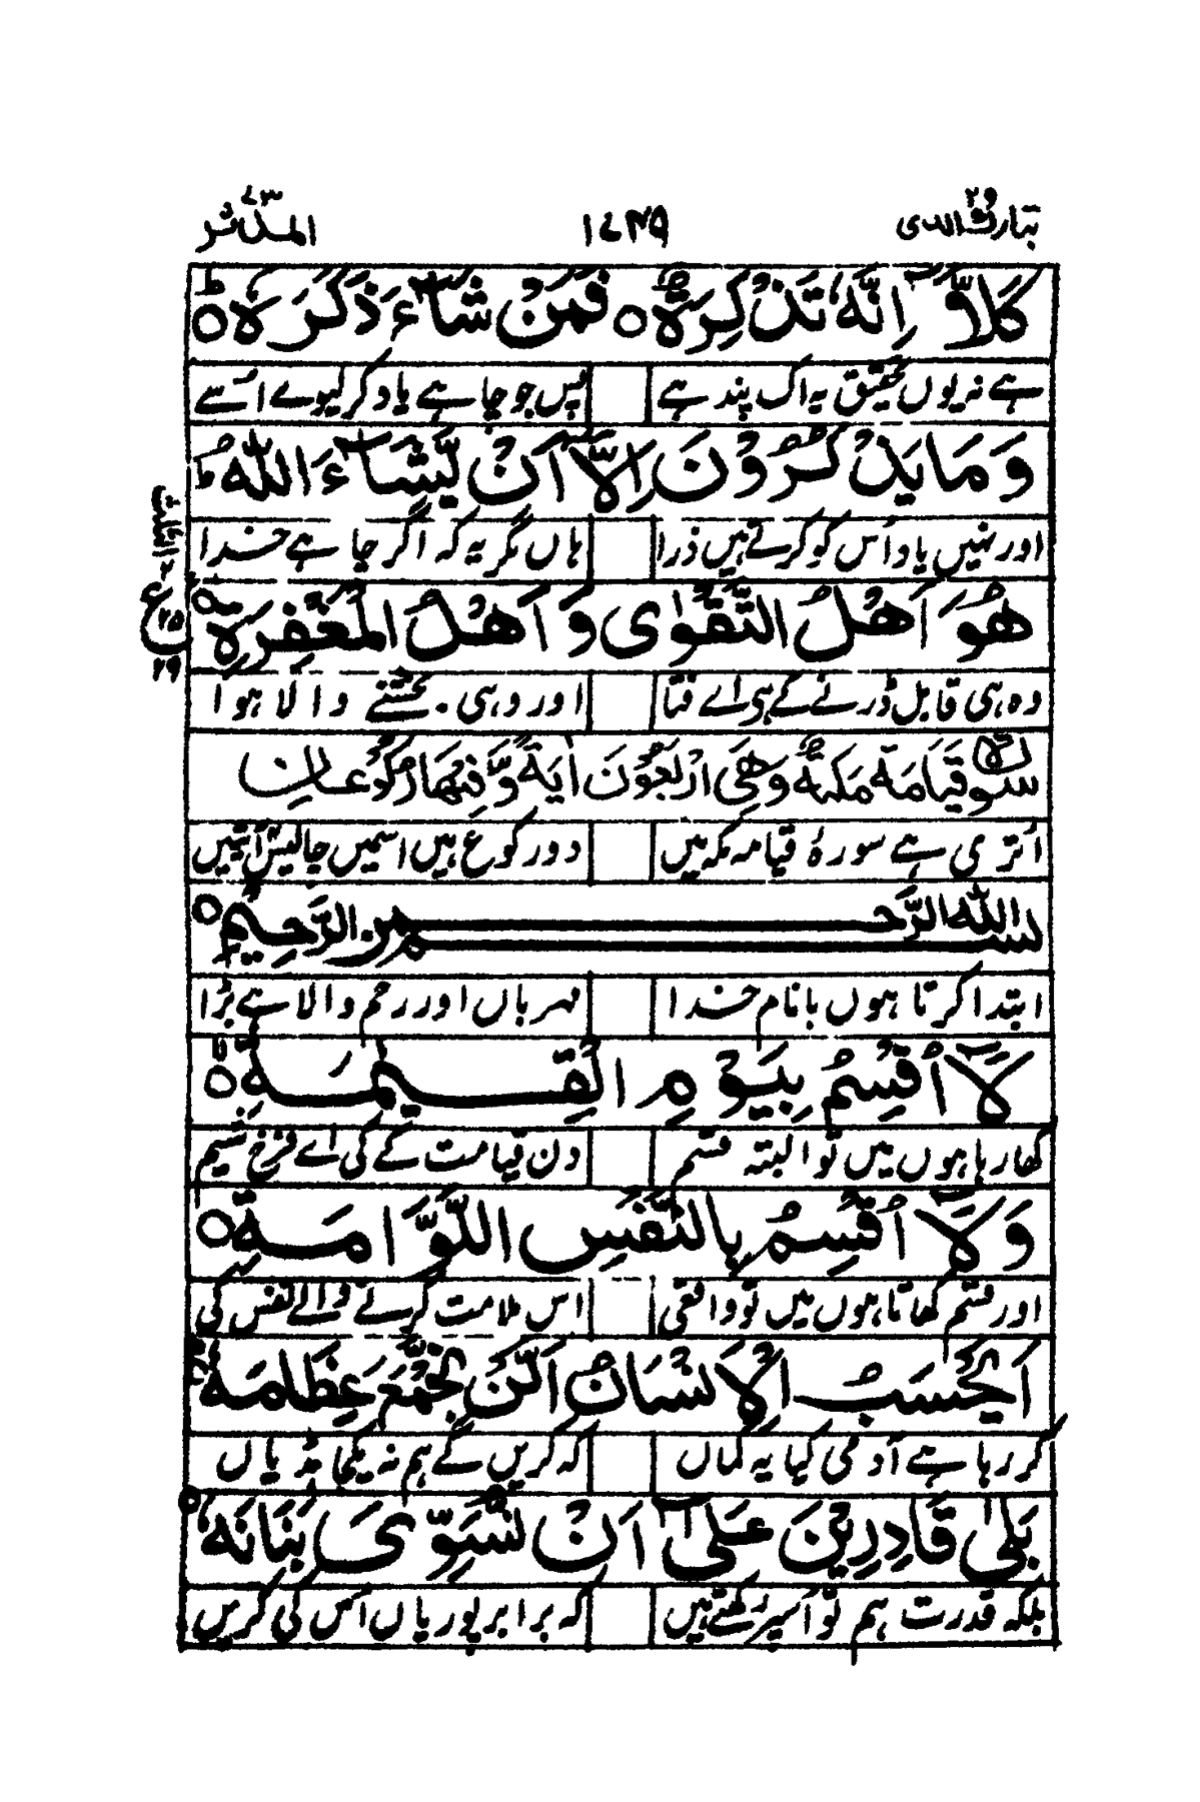 تبارك الذی ٢٩ ١٧٤٩ المدّثر ٧٣
كَلَّاۤ اِنَّهٗ تَذْكِرَةٌ ○ فَمَنْ شَآءَ ذَكَرَهٗ ○ ط
ہے نہ یوں تحقیق یہ اک پند ہے پس جو چاہے یاد کر لیوے اُسے
وَمَا يَذْكُرُوْنَ اِلَّاۤ اَنْ يَّشَآءَ اللّٰهُ ط
اور نہیں یاد اُس کو کرتے ہیں ذرا ہاں مگر یہ کہ اگر چاہے خدا
هُوَ اَهْلُ التَّقْوٰى وَ اَهْلُ الْمَغْفِرَةِ ○
وہ ہی قابل ڈرنے کے ہی اے فتا اور وہی بخشنے والا ہوا
سورة قيامة مَكِّيَّةٌ وَّهِيَ اَرْبَعُوْنَ اٰيَةً وَّ فِيْهَا رُكُوْعَانِ
اُتری ہے سورۂ قیامہ مکہ میں دو رکوع ہیں اسمیں چالیس آیتیں
بسم الله الرَّحمٰنِ الرَّحِيْمِ ○
ابتدا کرتا ہوں با نام خدا مہرباں اور رحم والا ہے بڑا
لَاۤ اُقْسِمُ بِيَوْمِ الْقِيٰمَةِ ○
کھا رہا ہوں میں تو البتہ قسم دن قیامت کے کی اے فرخ شیم
وَلَاۤ اُقْسِمُ بِالنَّفْسِ اللَّوَّامَةِ ○
اور قسم کھاتا ہوں میں تو واقعی اس ملامت کرنے والے نفس کی
اَيَحْسَبُ الْاِنْسَانُ اَلَّنْ نَّجْمَعَ عِظَامَهٗ
کر رہا ہے آدمی کیا یہ گماں کہ کریں گے ہم نہ یکجا ہڈیاں
بَلٰى قَادِرِيْنَ عَلٰۤى اَنْ نُّسَوِّىَ بَنَانَهٗ ○
بلکہ قدرت ہم تو اسپر رکھتے ہیں کہ برابر پوریاں اُس کی کریں